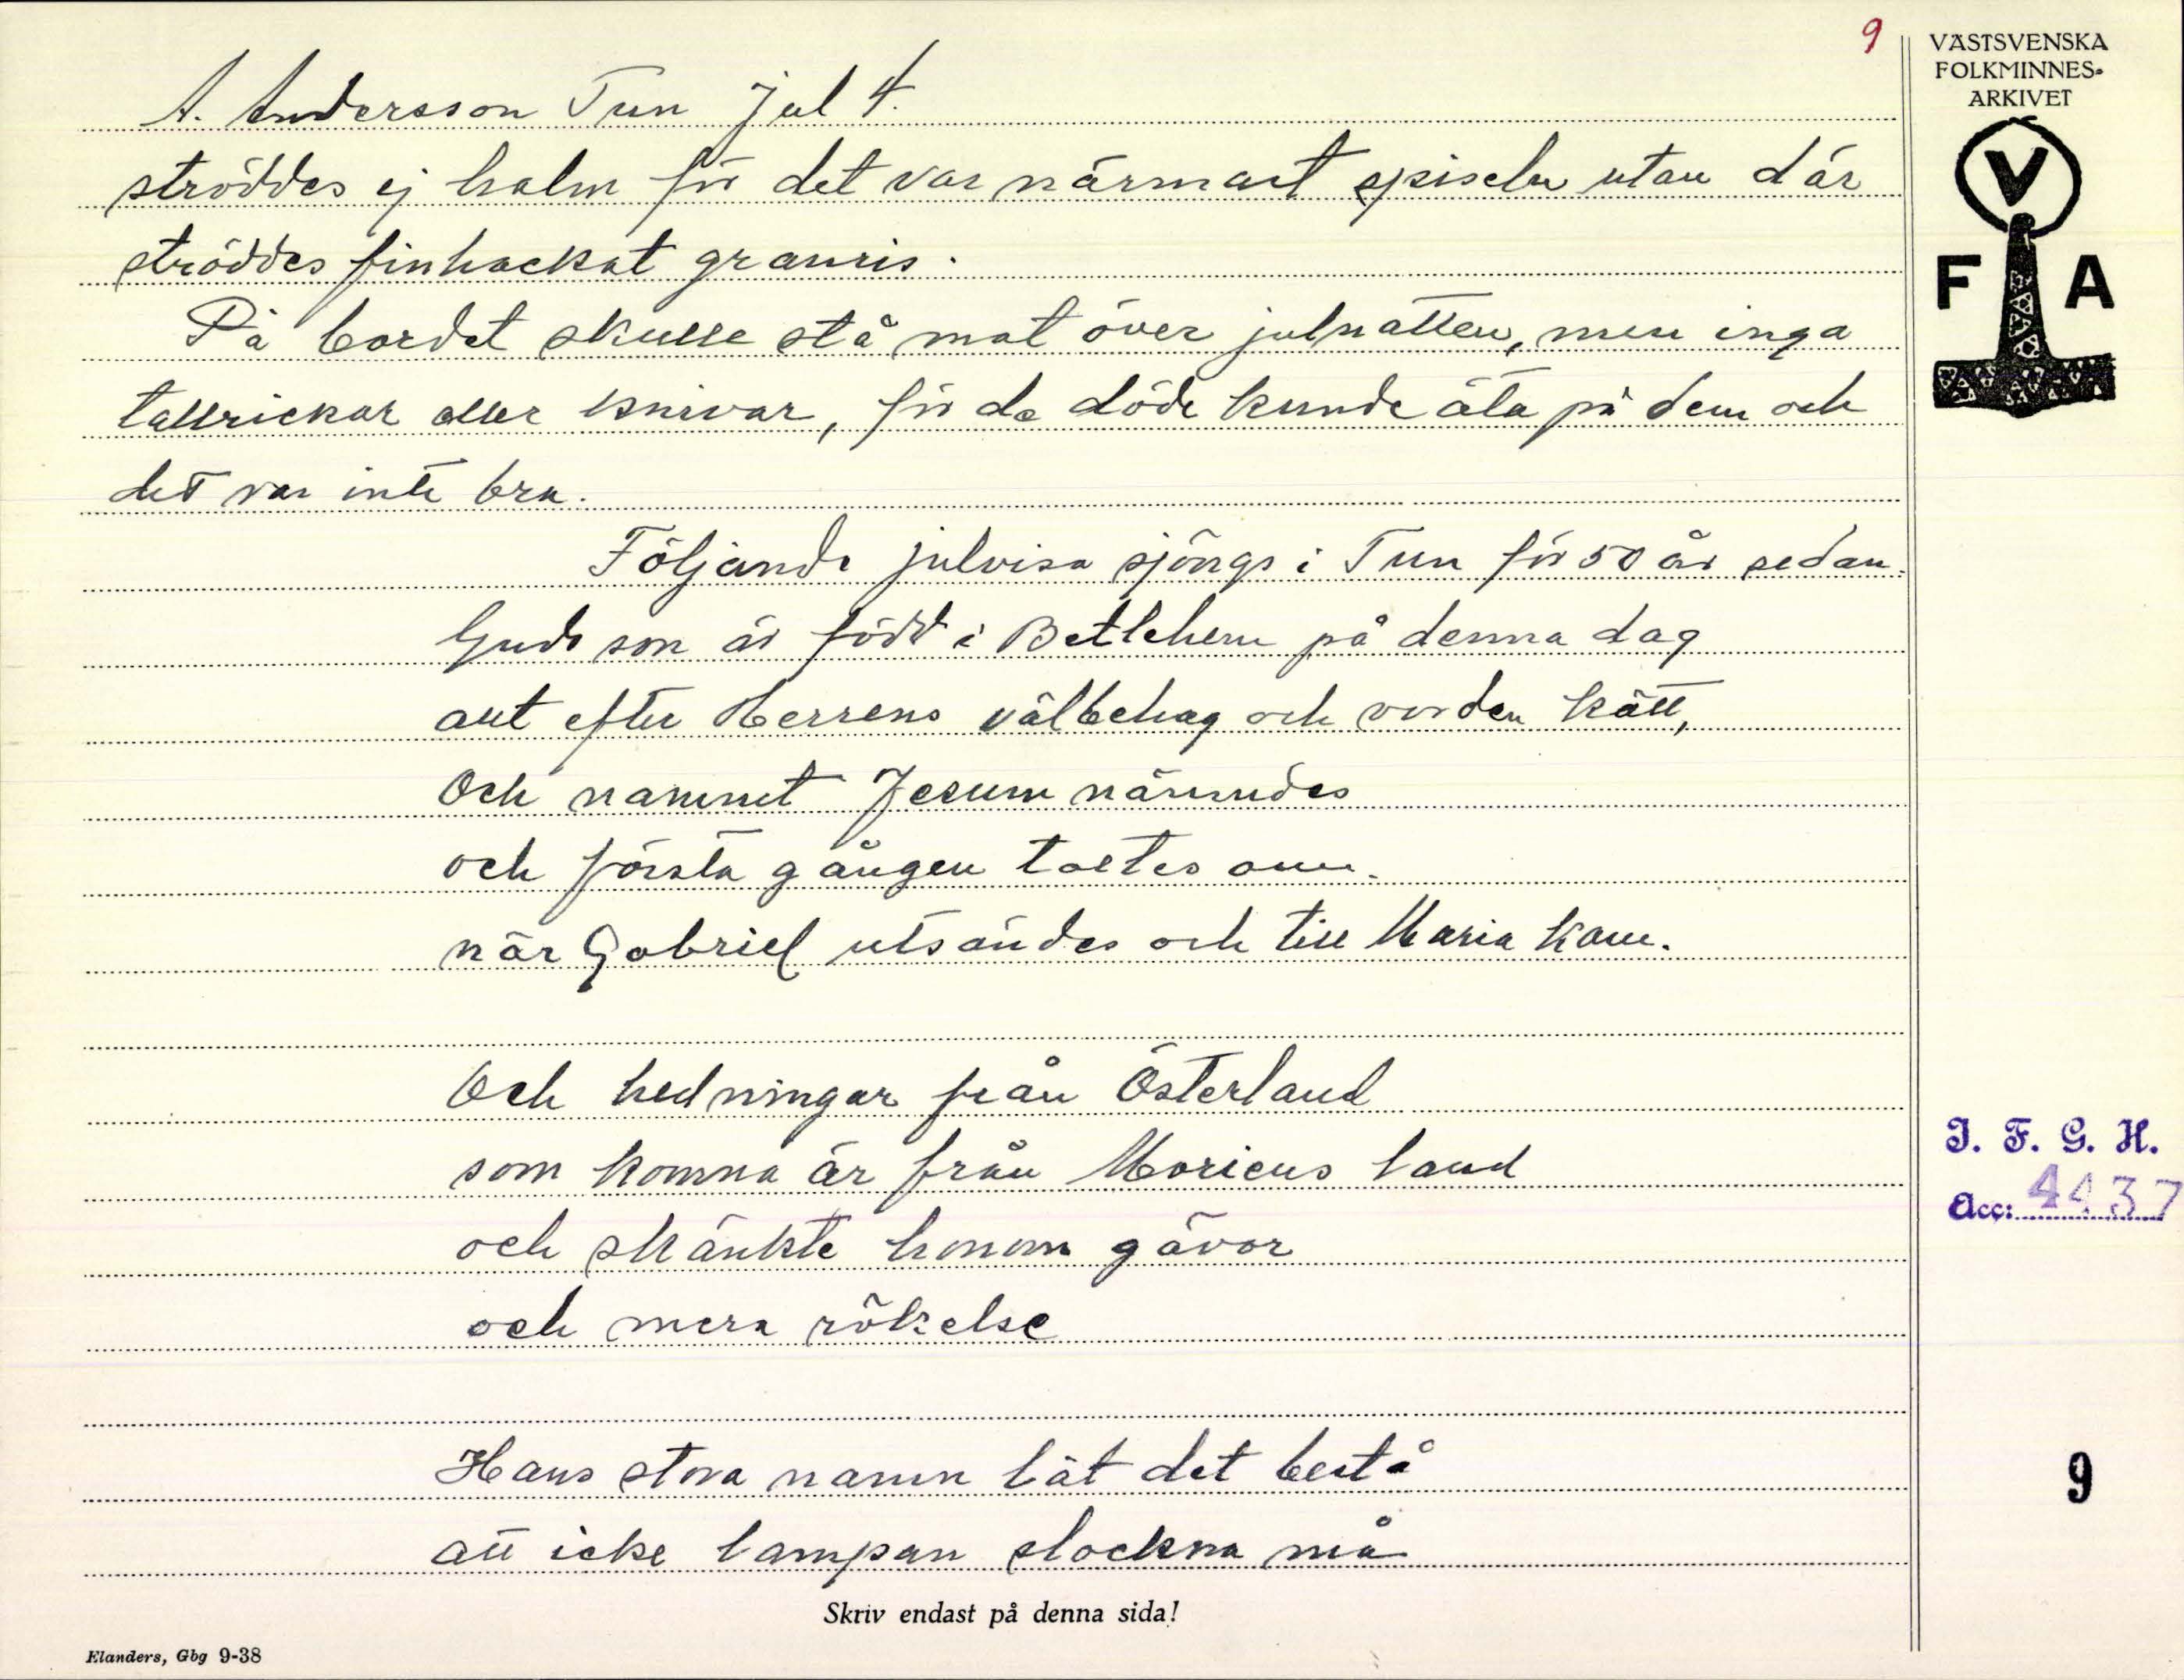 9
VÄSTSVENSKA
FOLKMINNES-
ARKIVET
V
F A
A. Andersson Tun Jul 4.
ströddes ej halm för det var närmast spiseln utan där
ströddes finhackat granris.
På bordet skulle stå mat över julnatten, men inga
tallrickar eller knivar, för de döde kunde äta på dem och
det var inte bra.
Följande julvisa sjöngs i Tun för 50 år sedan.
Guds son är född i Betlehem på denna dag
allt efter Herrens välbehag och vorden kött,
Och namnet Jesum nämndes
och första gången taltes om.
när Gabriel utsändes och till Maria kom.
Och hedningar från Österland
som komna är från Moriens land
och skänkte honom gåvor
och mera rökelse
Hans stora namn låt det bestå
att icke lampan slockna må
I. F. G. H.
Acc: 4437
9
Skriv endast på denna sida!
Elanders, Gbg 9-38